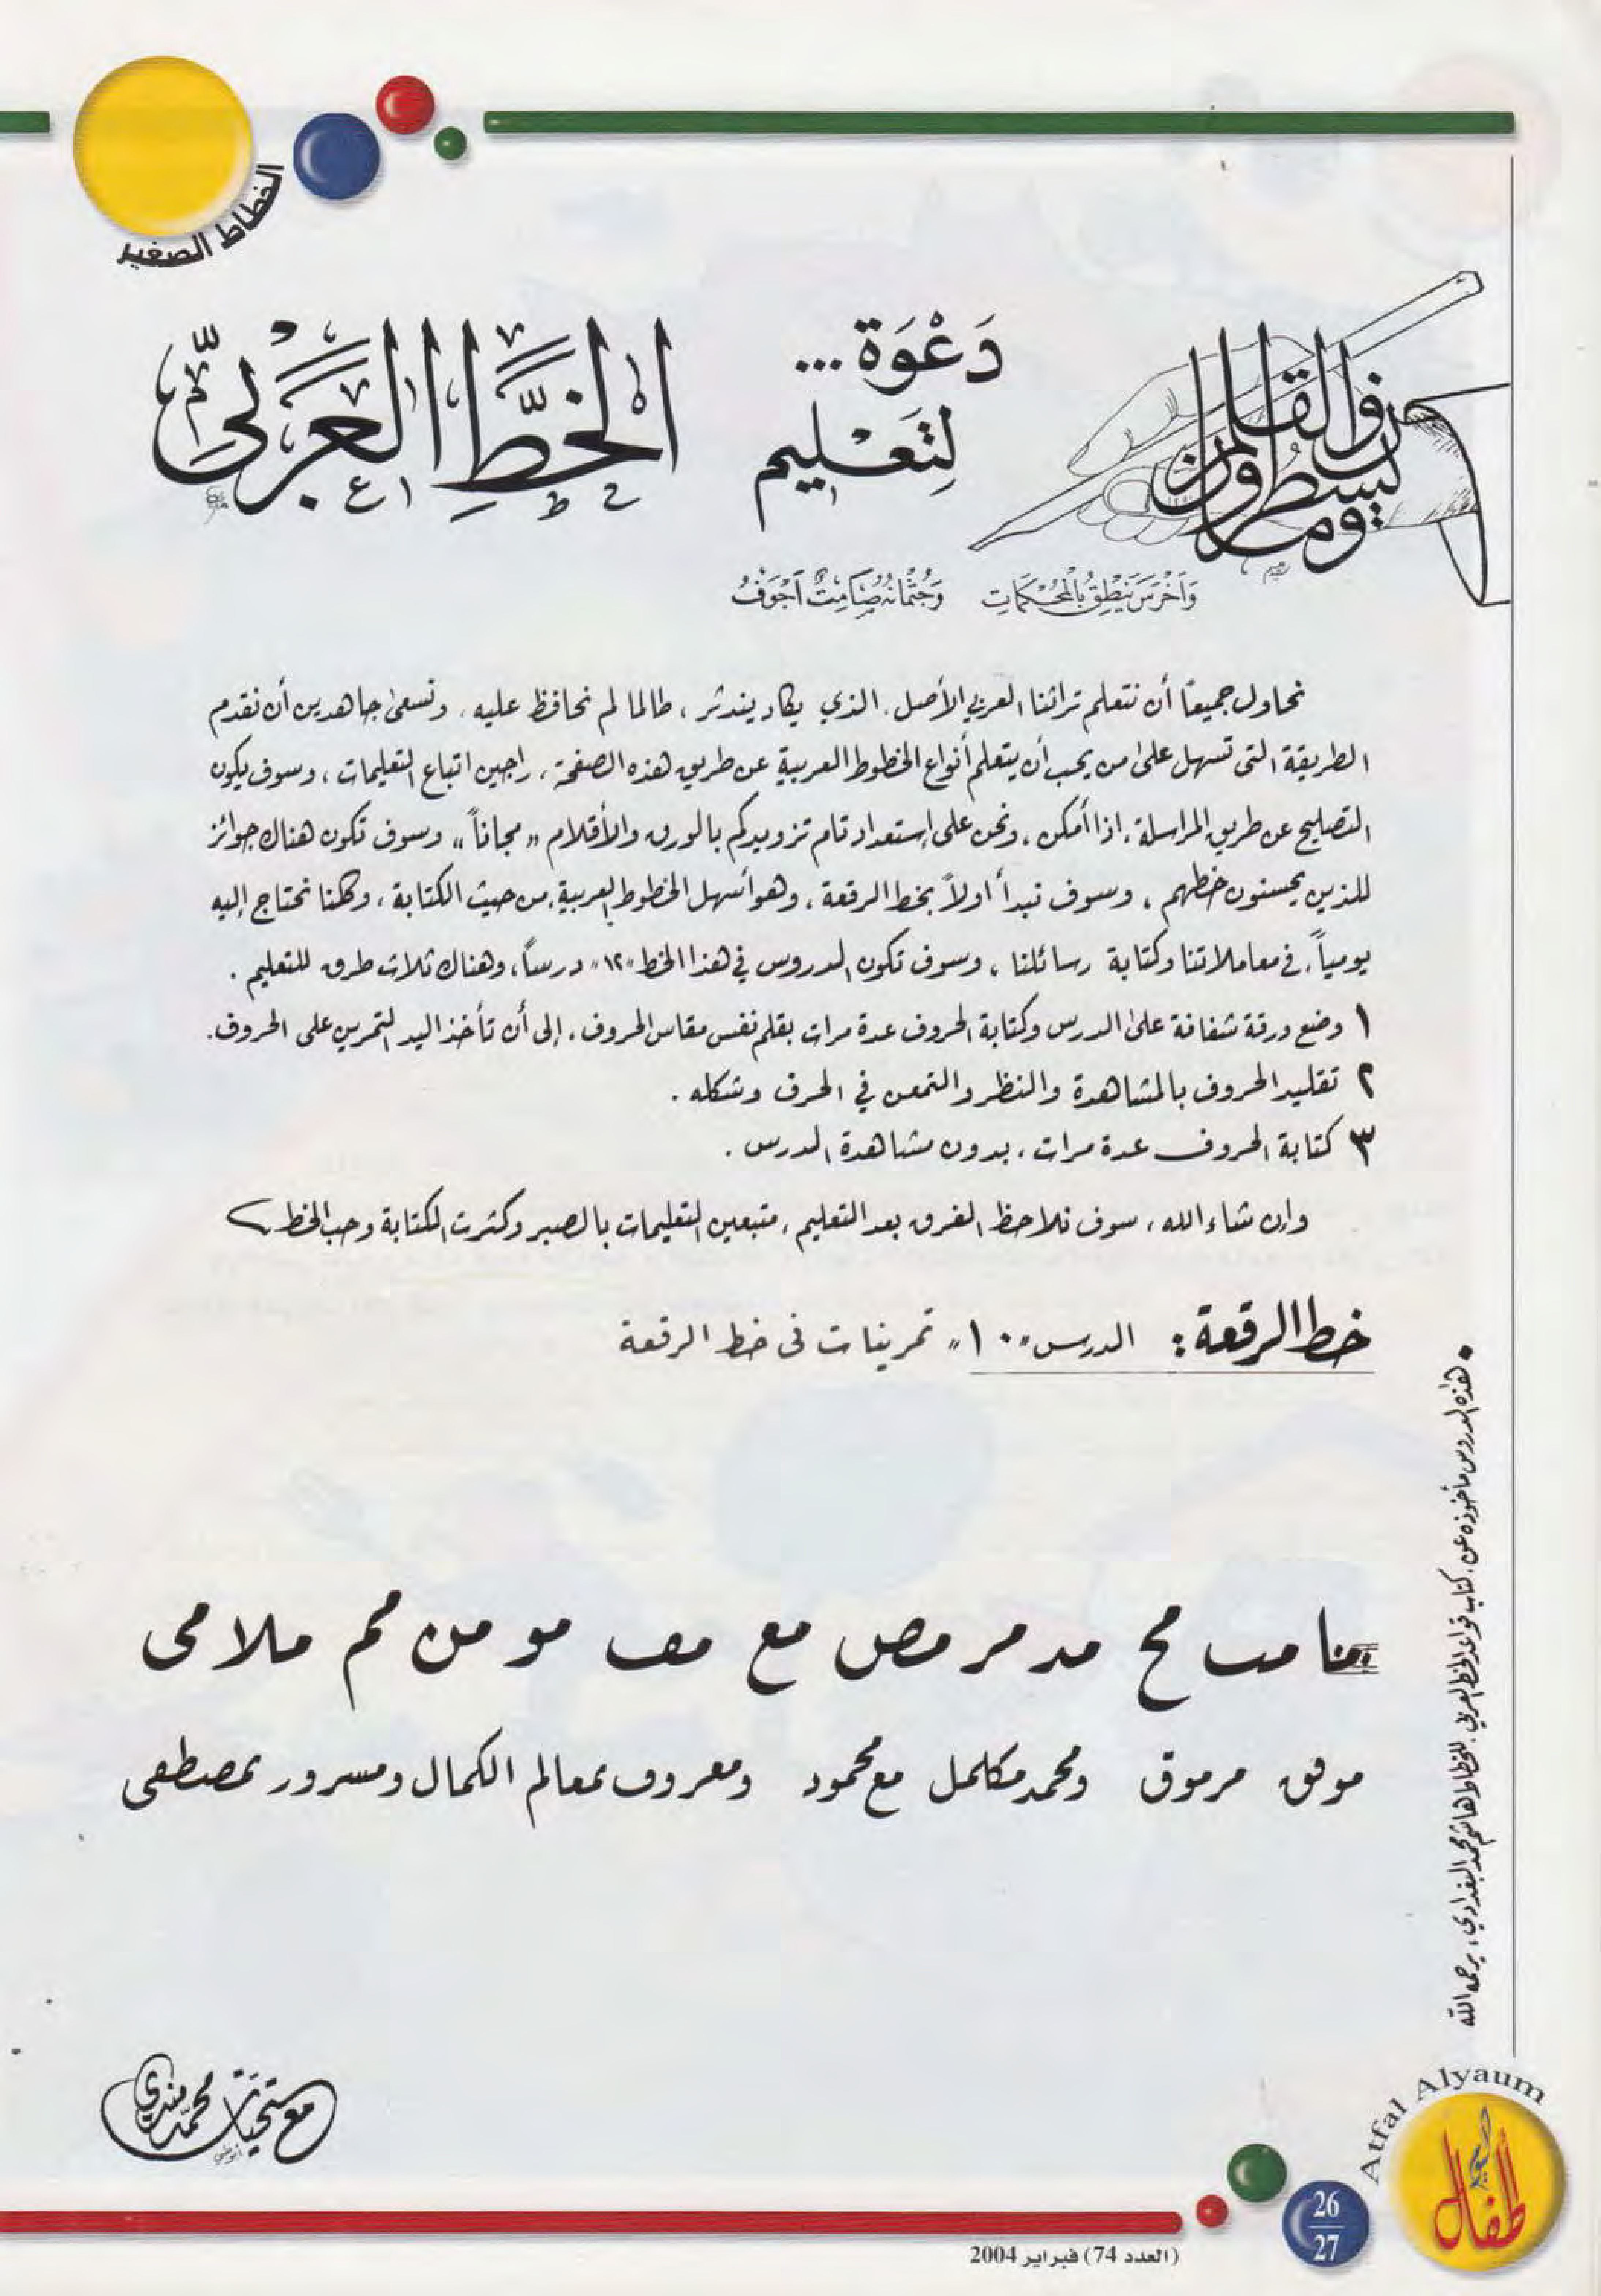 الخطاط الصغير
ن والقلم وما يسطرون
دَعْوَة...
لِتَعْليم
الخَطِّ العَرَبيّ
وَأَخْرَسَ يَنْطِقُ بالمُحْكَمَاتِ وَجُثْمَانُهُ صَامِتٌ أَجْوَفُ
نحاول جميعاً أن نتعلم تراثنا العربي الأصل. الذي يكاد يندثر، طالما لم نحافظ عليه. ونسعى جاهدين أن نقدم
الطريقة التى تسهل على من يحب أن يتعلم أنواع الخطوط العربية عن طريق هذه الصفحة، راجين اتباع التعليمات، وسوف يكون
التصليح عن طريق المراسلة، اذا أمكن، ونحن على إستعداد تام تزويدكم بالورق والأقلام "مجاناً" وسوف تكون هناك جوائز
للذين يحسنون خطهم، وسوف نبدأ اولاً بخط الرقعة، وهو أسهل الخطوط العربية، من حيث الكتابة، وكلنا نحتاج إليه
يومياً، في معاملاتنا وكتابة رسائلنا، وسوف تكون الدروس في هذا الخط "١٢" درساً، وهناك ثلاث طرق للتعليم.
١ وضع ورقة شفافة على الدرس وكتابة الحروف عدة مرات بقلم نفس مقاس الحروف، إلى أن تأخذ اليد التمرين على الحروف.
٢ تقليد الحروف بالمشاهدة والنظر والتمعن في الحرف وشكله.
٣ كتابة الحروف عدة مرات، بدون مشاهدة الدرس.
وإن شاء الله، سوف نلاحظ الفرق بعد التعليم، متبعين التعليمات بالصبر وكثرت الكتابة وحب الخط
خط الرقعة: الدرس "١٠" تمرينات فى خط الرقعة
منا مب مح مد مر مص مع مف مو من مم ملا مى
موفق مرموق ومحمد مكلمل مع محمود ومعروف بمعالم الكمال ومسرور بمصطفى
• هذه الدروس مأخوذه عن، كتاب قواعد الخط العربي، للخطاط هاشم محمد البغدادي، يرحمه الله
مع تحيات محمد مندي
أبوظبي
Atfal Alyaum
أطفال اليوم
26
27
(العدد 74) فبراير 2004